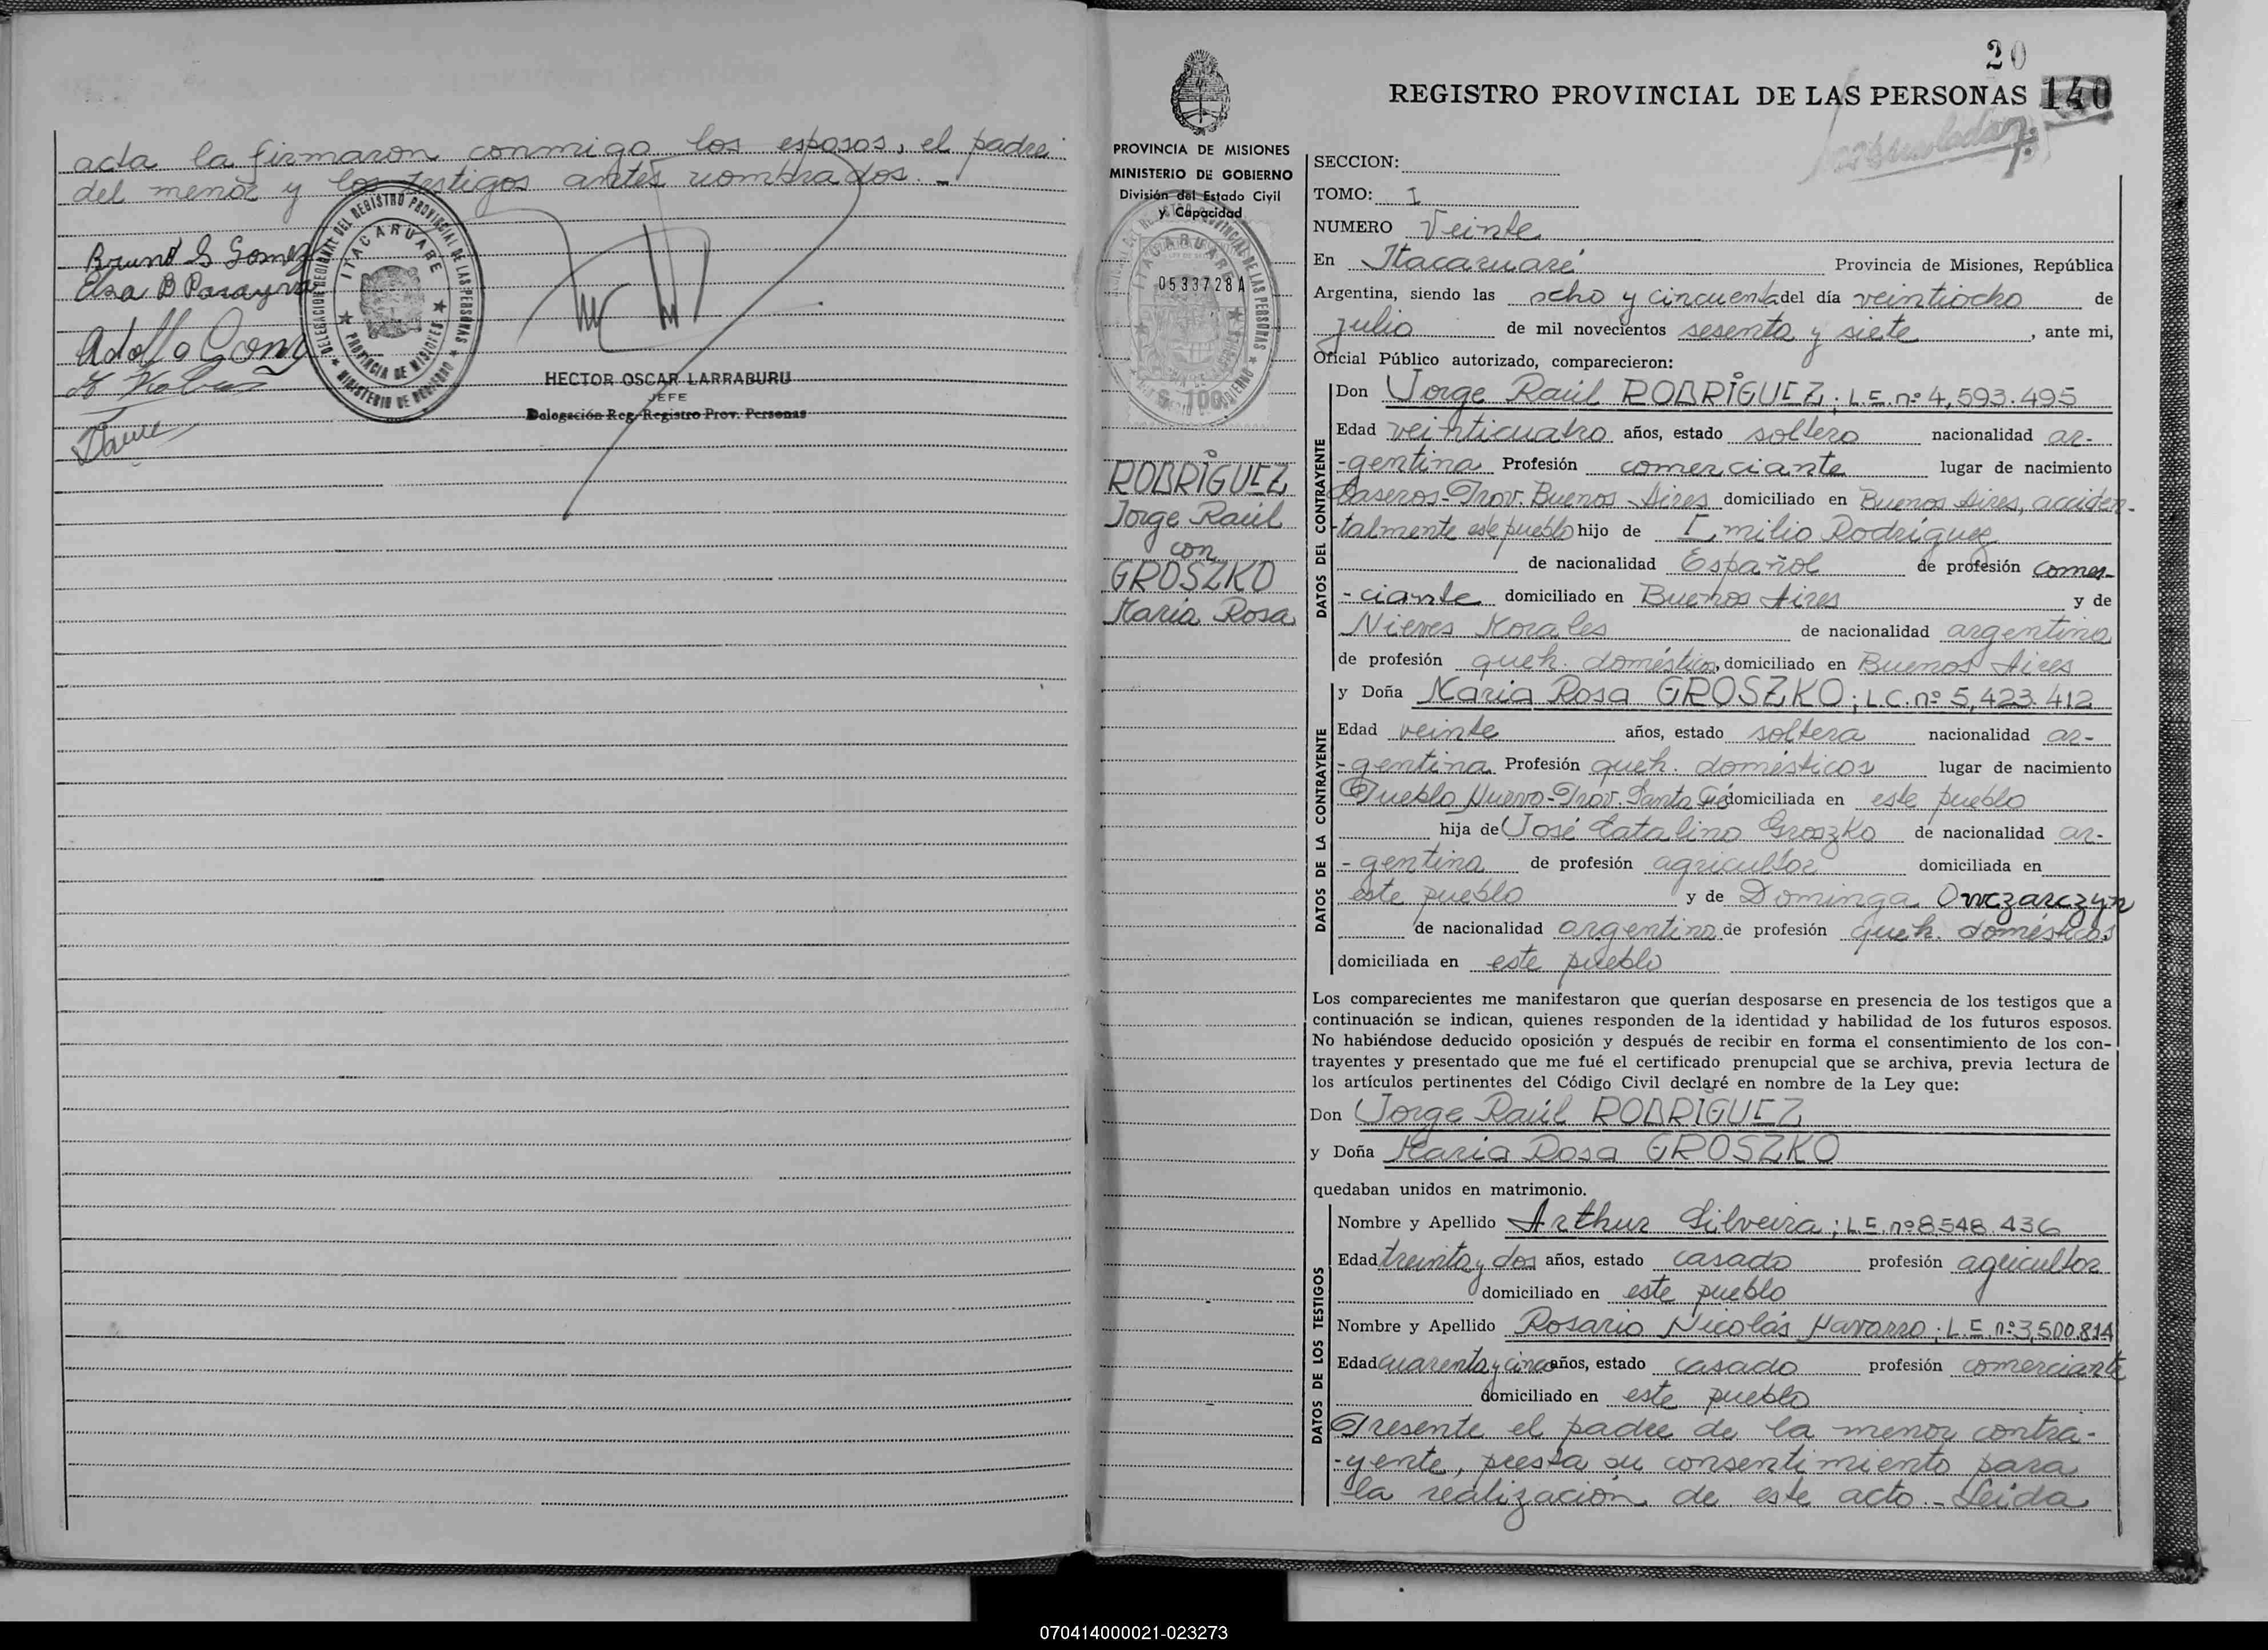 acta la firmaron conmigo los esposos, el padre
del menor y los testigos antes nombrados. -
Bruno S Gomez
Elsa B
Adolfo Gomez
DELEGACION REGIONAL DEL REGISTRO PROVINCIAL DE LAS PERSONAS
ITACARUARE
PROVINCIA DE MISIONES
MINISTERIO DE GOBIERNO
HECTOR OSCAR LARRABURU
JEFE
Delegación Reg. Registro Prov. Personas
20
REGISTRO PROVINCIAL DE LAS PERSONAS 140
PROVINCIA DE MISIONES
MINISTERIO DE GOBIERNO
División del Estado Civil
y Capacidad
0533728A
RODRÍGUEZ
Jorge Raúl
con
GROSZKO
María Rosa
SECCION:
TOMO: I
NUMERO Veinte
En Itacaruaré Provincia de Misiones, República
Argentina, siendo las ocho y cincuenta del día veintiocho de
julio de mil novecientos sesenta y siete, ante mi,
Oficial Público autorizado, comparecieron:
DATOS DEL CONTRAYENTE
Don Jorge Raúl RODRÍGUEZ; L.E. nº 4,593.495
Edad veinticuatro años, estado soltero nacionalidad ar-
-gentina Profesión comerciante lugar de nacimiento
Caseros-Prov. Buenos Aires domiciliado en Buenos Aires, acciden-
-talmente este pueblo hijo de Emilio Rodríguez
de nacionalidad Español de profesión comer-
-ciante domiciliado en Buenos Aires y de
Nieves Morales de nacionalidad argentina
de profesión queh. domésticos, domiciliado en Buenos Aires
DATOS DE LA CONTRAYENTE
y Doña María Rosa GROSZKO; L.C. nº 5,423.412
Edad veinte años, estado soltera nacionalidad ar-
-gentina Profesión queh. domésticos lugar de nacimiento
Pueblo Nuevo-Prov. Santa Fé domiciliada en este pueblo
hija de José Catalino Groszko de nacionalidad ar-
-gentina de profesión agricultor domiciliada en
este pueblo y de Dominga Owczarczyn
de nacionalidad argentina de profesión queh. domésticos
domiciliada en este pueblo
Los comparecientes me manifestaron que querían desposarse en presencia de los testigos que a
continuación se indican, quienes responden de la identidad y habilidad de los futuros esposos.
No habiéndose deducido oposición y después de recibir en forma el consentimiento de los con-
trayentes y presentado que me fué el certificado prenupcial que se archiva, previa lectura de
los artículos pertinentes del Código Civil declaré en nombre de la Ley que:
Don Jorge Raúl RODRIGUEZ
y Doña María Rosa GROSZKO
quedaban unidos en matrimonio.
DATOS DE LOS TESTIGOS
Nombre y Apellido Arthur Silveira; L.E. nº 8548.436
Edad treinta y dos años, estado casado profesión agricultor
domiciliado en este pueblo
Nombre y Apellido Rosario Nicolás Navarro; L.E. nº 3,500.814
Edad cuarenta y cinco años, estado casado profesión comerciante
domiciliado en este pueblo
Presente el padre de la menor contra-
-yente, presta su consentimiento para
la realización de este acto.- Leida
070414000021-023273